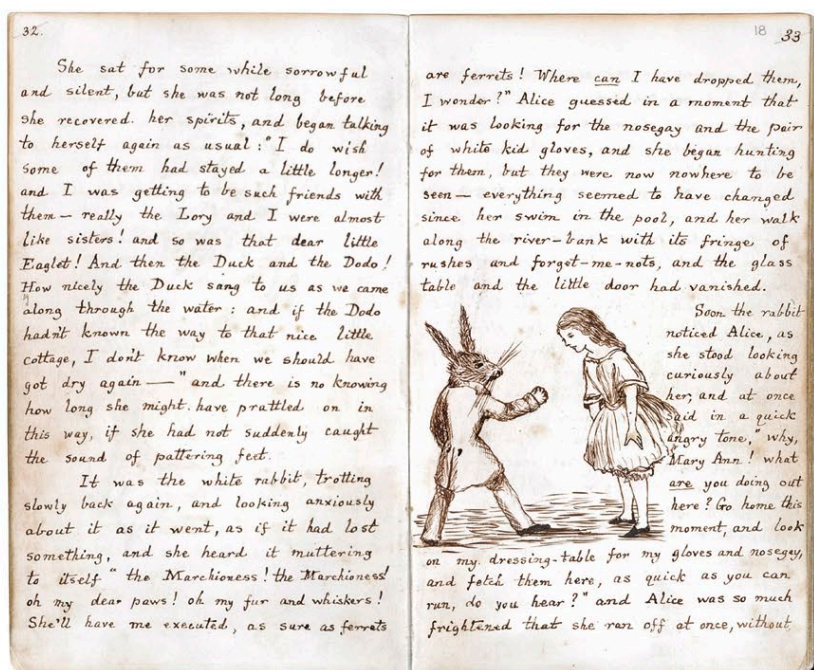 32.
She sat for some while sorrowful
and silent, but she was not long before
she recovered her spirits, and began talking
to herself again as usual: "I do wish
some of them had stayed a little longer!
and I was getting to be such friends with
them — really the Lory and I were almost
like sisters! and so was that dear little
Eaglet! And then the Duck and the Dodo!
How nicely the Duck sang to us as we came
along through the water: and if the Dodo
hadn't known the way to that nice little
cottage, I don't know when we should have
got dry again —" and there is no knowing
how long she might have prattled on in
this way, if she had not suddenly caught
the sound of pattering feet.
It was the white rabbit, trotting
slowly back again, and looking anxiously
about it as it went, as if it had lost
something, and she heard it muttering
to itself "the Marchioness! the Marchioness!
oh my dear paws! oh my fur and whiskers!
She'll have me executed, as sure as ferrets
18
33
are ferrets! Where can I have dropped them,
I wonder?" Alice guessed in a moment that
it was looking for the nosegay and the pair
of white kid gloves, and she began hunting
for them, but they were now nowhere to be
seen — everything seemed to have changed
since her swim in the pool, and her walk
along the river-bank with its fringe of
rushes and forget-me-nots, and the glass
table and the little door had vanished.
Soon the rabbit
noticed Alice, as
she stood looking
curiously about
her, and at once
said in a quick
angry tone, "why,
Mary Ann! what
are you doing out
here? Go home this
moment, and look
on my dressing-table for my gloves and nosegay,
and fetch them here, as quick as you can
run, do you hear?" and Alice was so much
frightened that she ran off at once, without